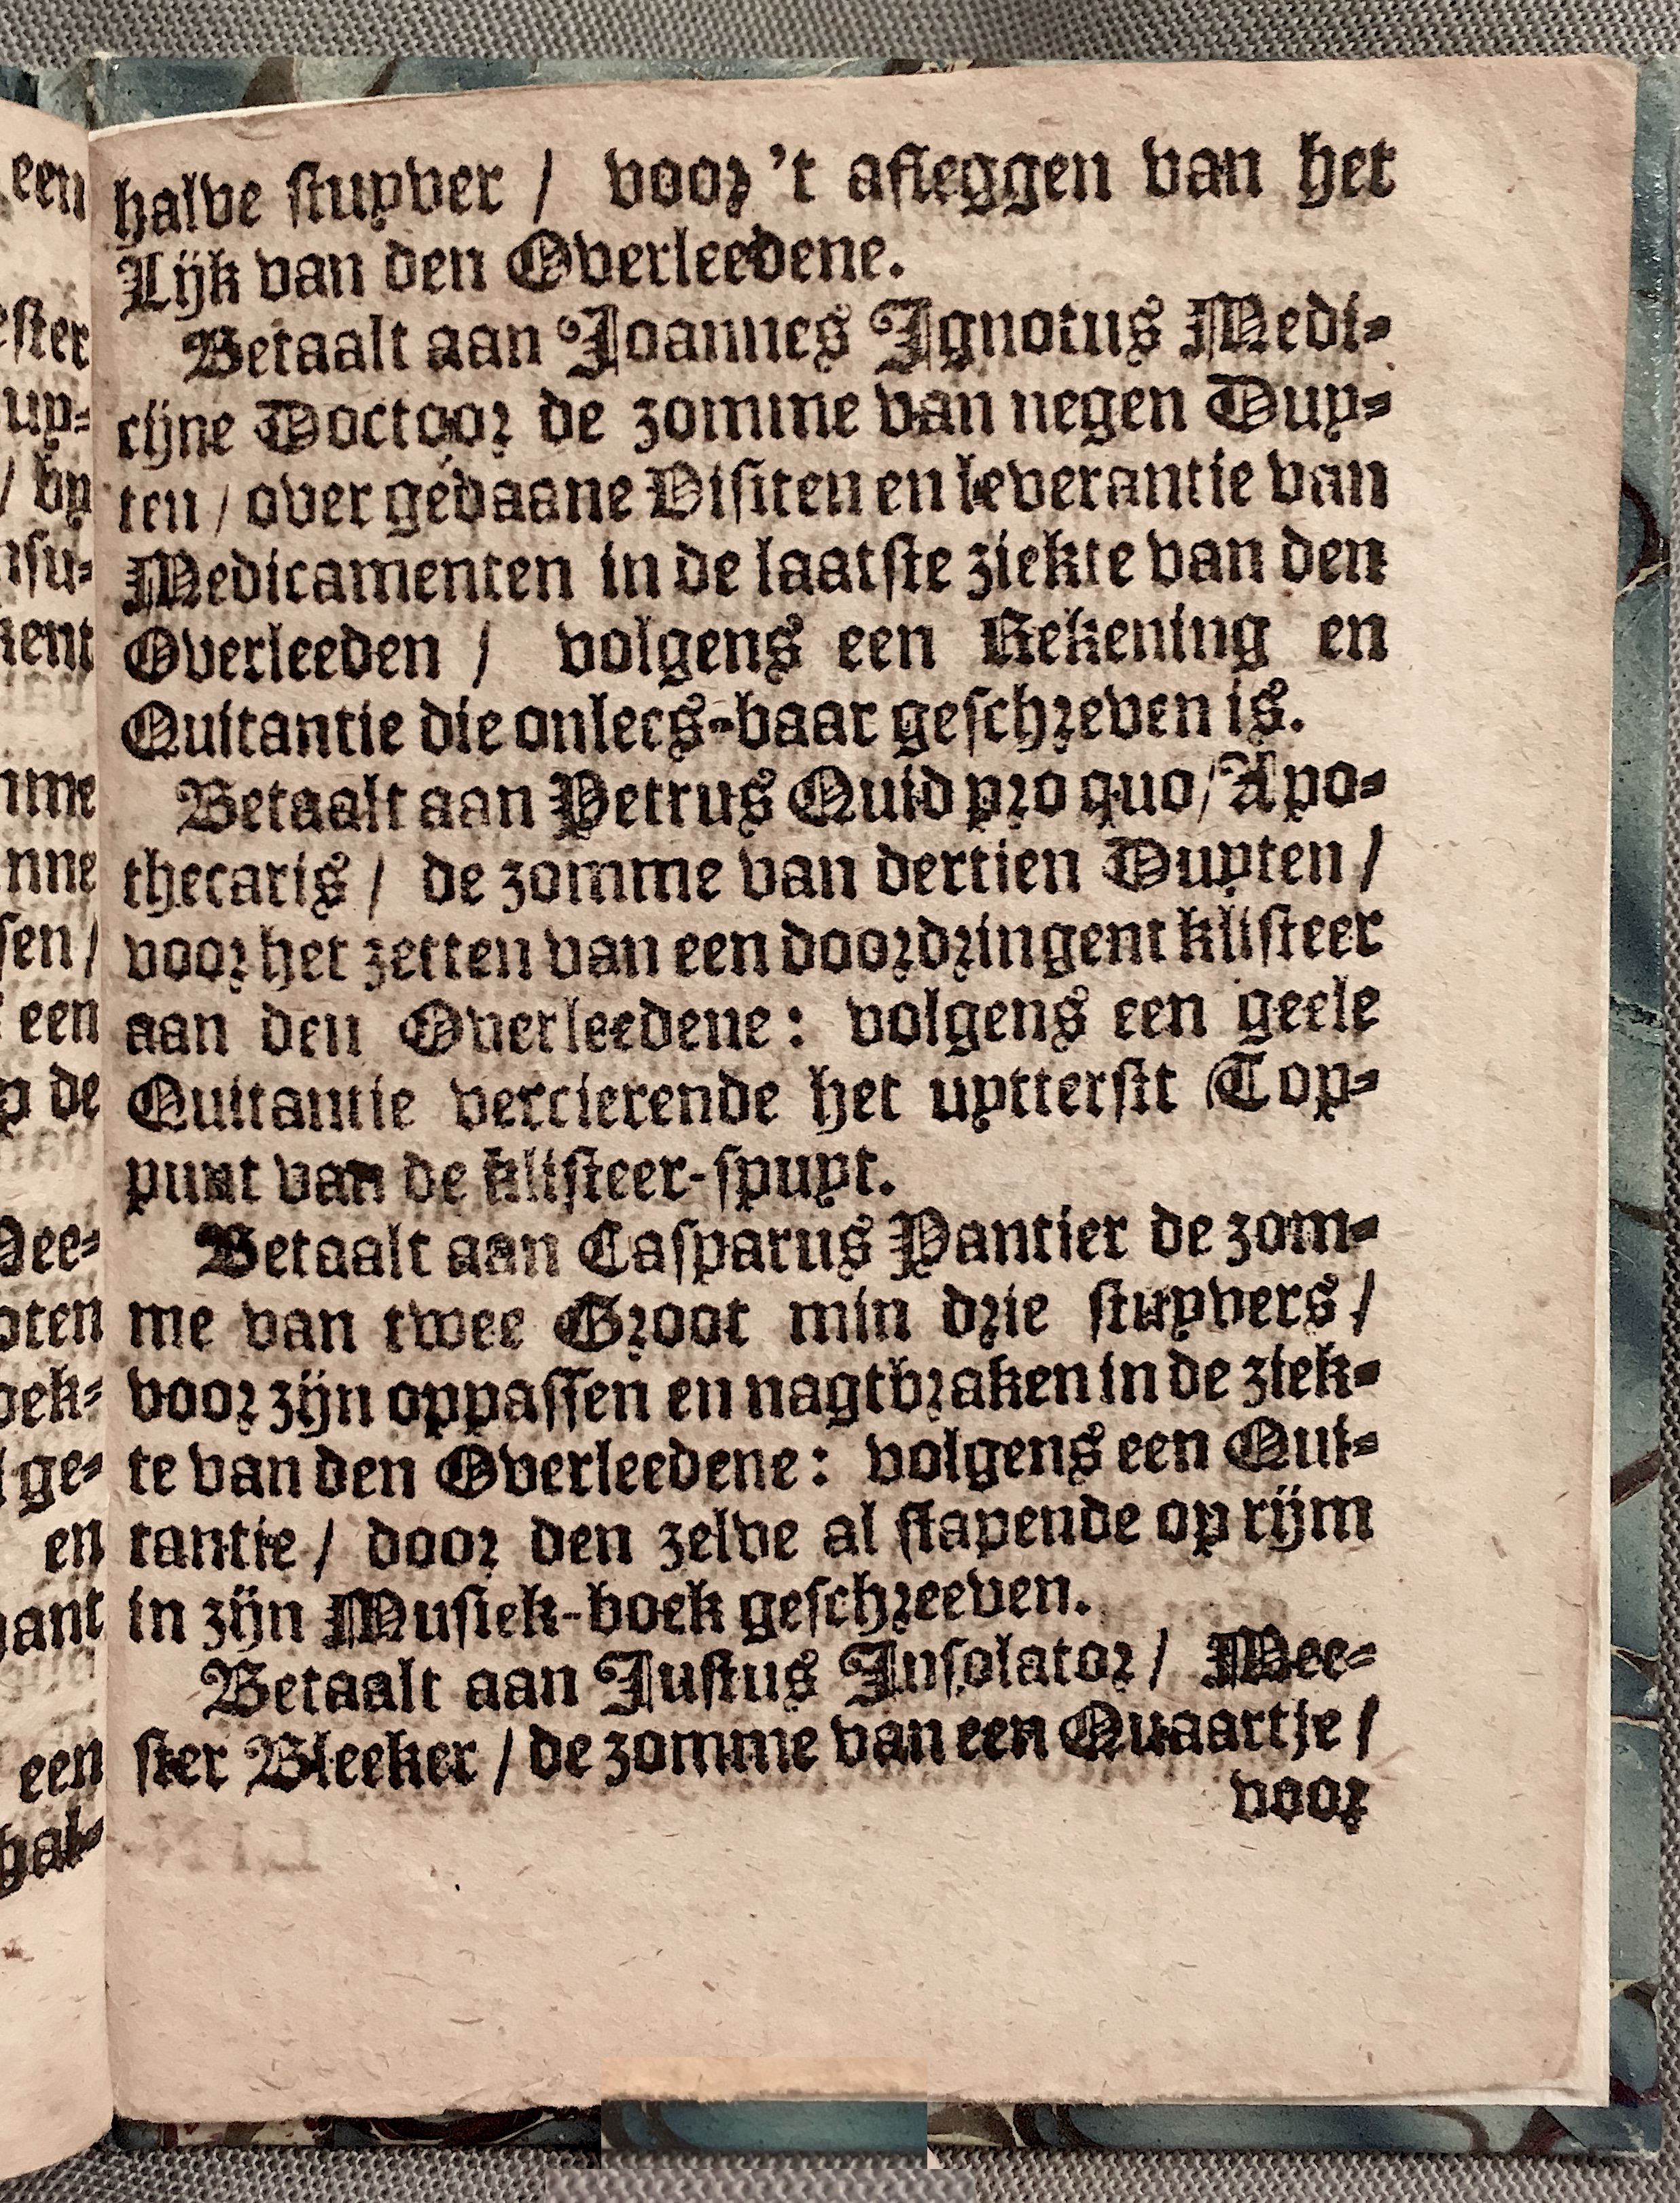 halve stuyver / voor 't afleggen van het
Lijk van den Overleedene.
Betaalt aan Joannes Ignotus Medi-
cijne Doctoor de zomme van negen Duy-
ten / over gedaane Visiten en leverantie van
Medicamenten in de laatste ziekte van den
Overleeden / volgens een Rekening en
Quitantie die onlees-baar geschreven is.
Betaalt aan Petrus Quid pro quo / Apo-
thecaris / de zomme van dertien Duyten /
voor het zetten van een doordringent klisteer
aan den Overleedene: volgens een geele
Quitantie vercierende het uytterstt Top-
punt van de klisteer-spuyt.
Betaalt aan Casparus Pantier de zom-
me van twee Groot min drie stuyvers /
voor zijn oppassen en nagtbraken in de ziek-
te van den Overleedene: volgens een Qui-
tantie / door den zelve al slapende op rijm
in zijn Musiek-boek geschreeven.
Betaalt aan Justus Insolator / Mee-
ster Bleeker / de zomme van een Quaartje /
voor